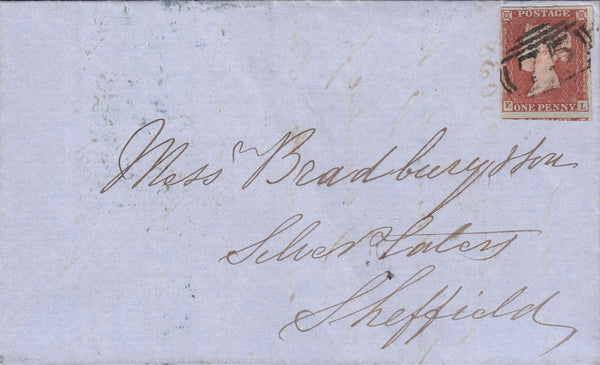 POSTAGE
75
E ONE PENNY L
Messrs Bradbury & Son
Silver Platers
Sheffield